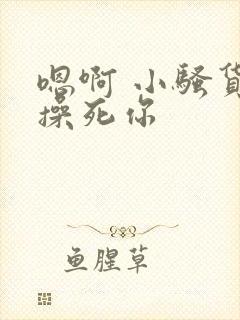 嗯啊 小骚货
操死你
鱼腥草